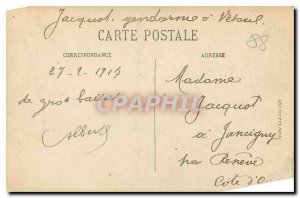 Jacquot. gendarme à Vesoul
88
CARTE POSTALE
CORRESPONDANCE
ADRESSE
27-2-1917
de gros baisers
Albert
Madame
Jacquot
à Jancigny
par Renève
Côte d'O
CPAPHIL.COM